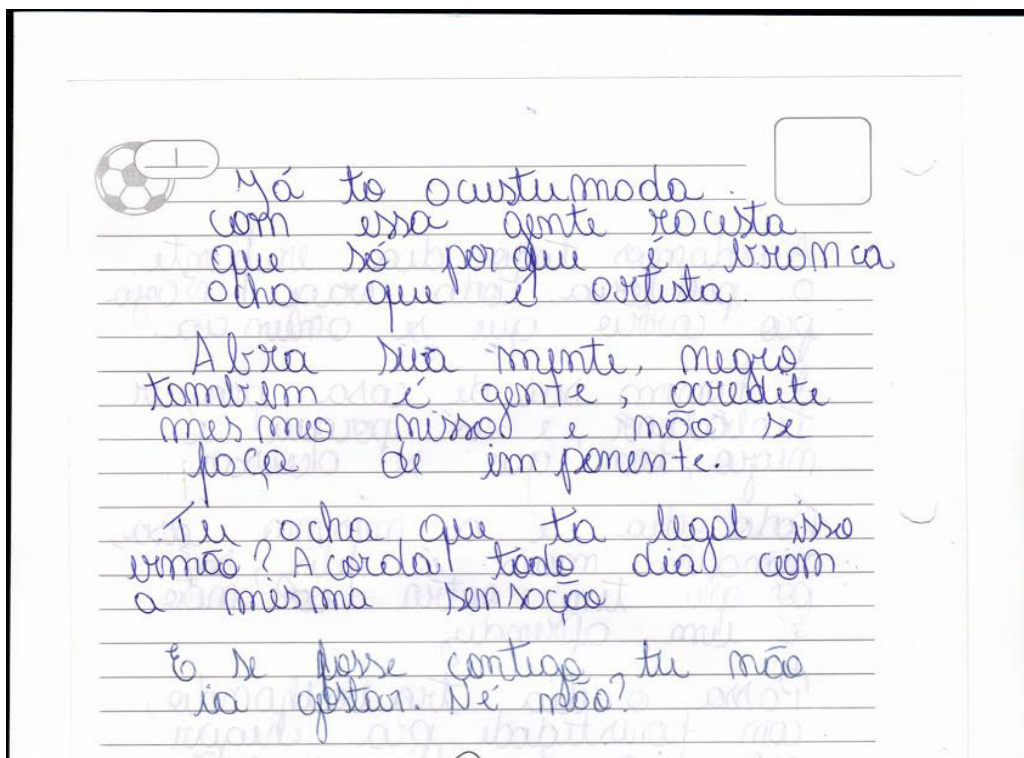 Já to acustumada
com essa gente racista
que só porque é branca
acha que é artista.
Abra sua mente, negro
tambem é gente, acredite
mesmo nisso e não se
faça de imponente.
Tu acha que ta legal isso
irmão? Acorda todo dia com
a mesma sensação
E se fosse contigo, tu não
ia gostar. Né não?